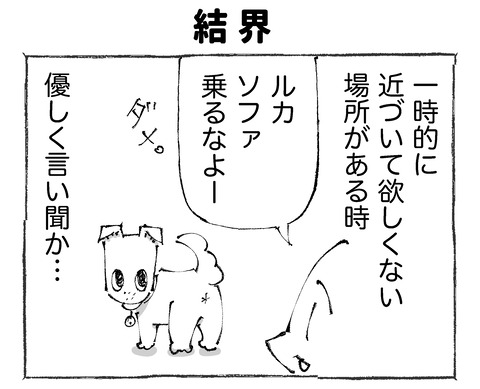 結界
一時的に
近づいて欲しくない
場所がある時
ルカ
ソファ
乗るなよー
ダメ。
優しく言い聞か…